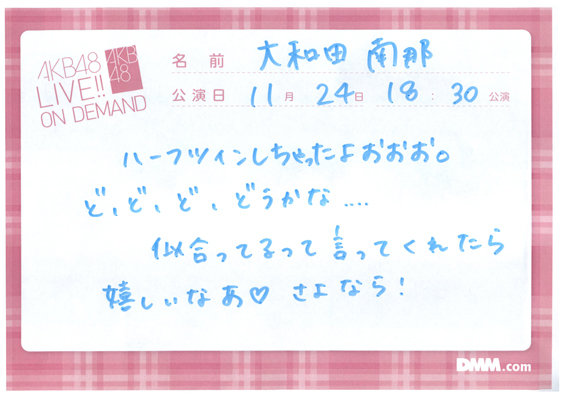 AKB48
LIVE!!
ON DEMAND
AKB
48
名前 大和田 南那
公演日 11月 24日 18:30公演
ハーフツインしちゃったよおおお。
ど、ど、ど、どうかな....
似合ってるって言ってくれたら
嬉しいなあ♡ さよなら!
DMM.com